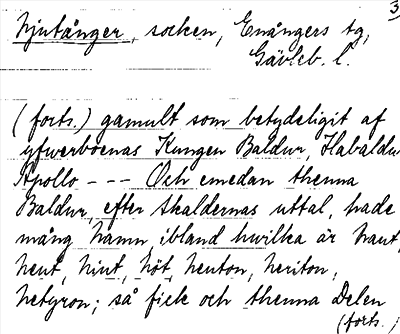 3
Njutånger, socken, Enångers tg,
Gävleb. l.
(forts.) gamult som betydeligit af
yfwerboenas Kungen Baldur, Habaldur
Apollo - - - Och emedan thenna
Baldur, efter skaldernas uttal, hade
mång hamn, ibland hwilka är haut,
heut, hiut, höt, heuton, heriton,
hetyron; så fick och thenna Delen
(forts.)